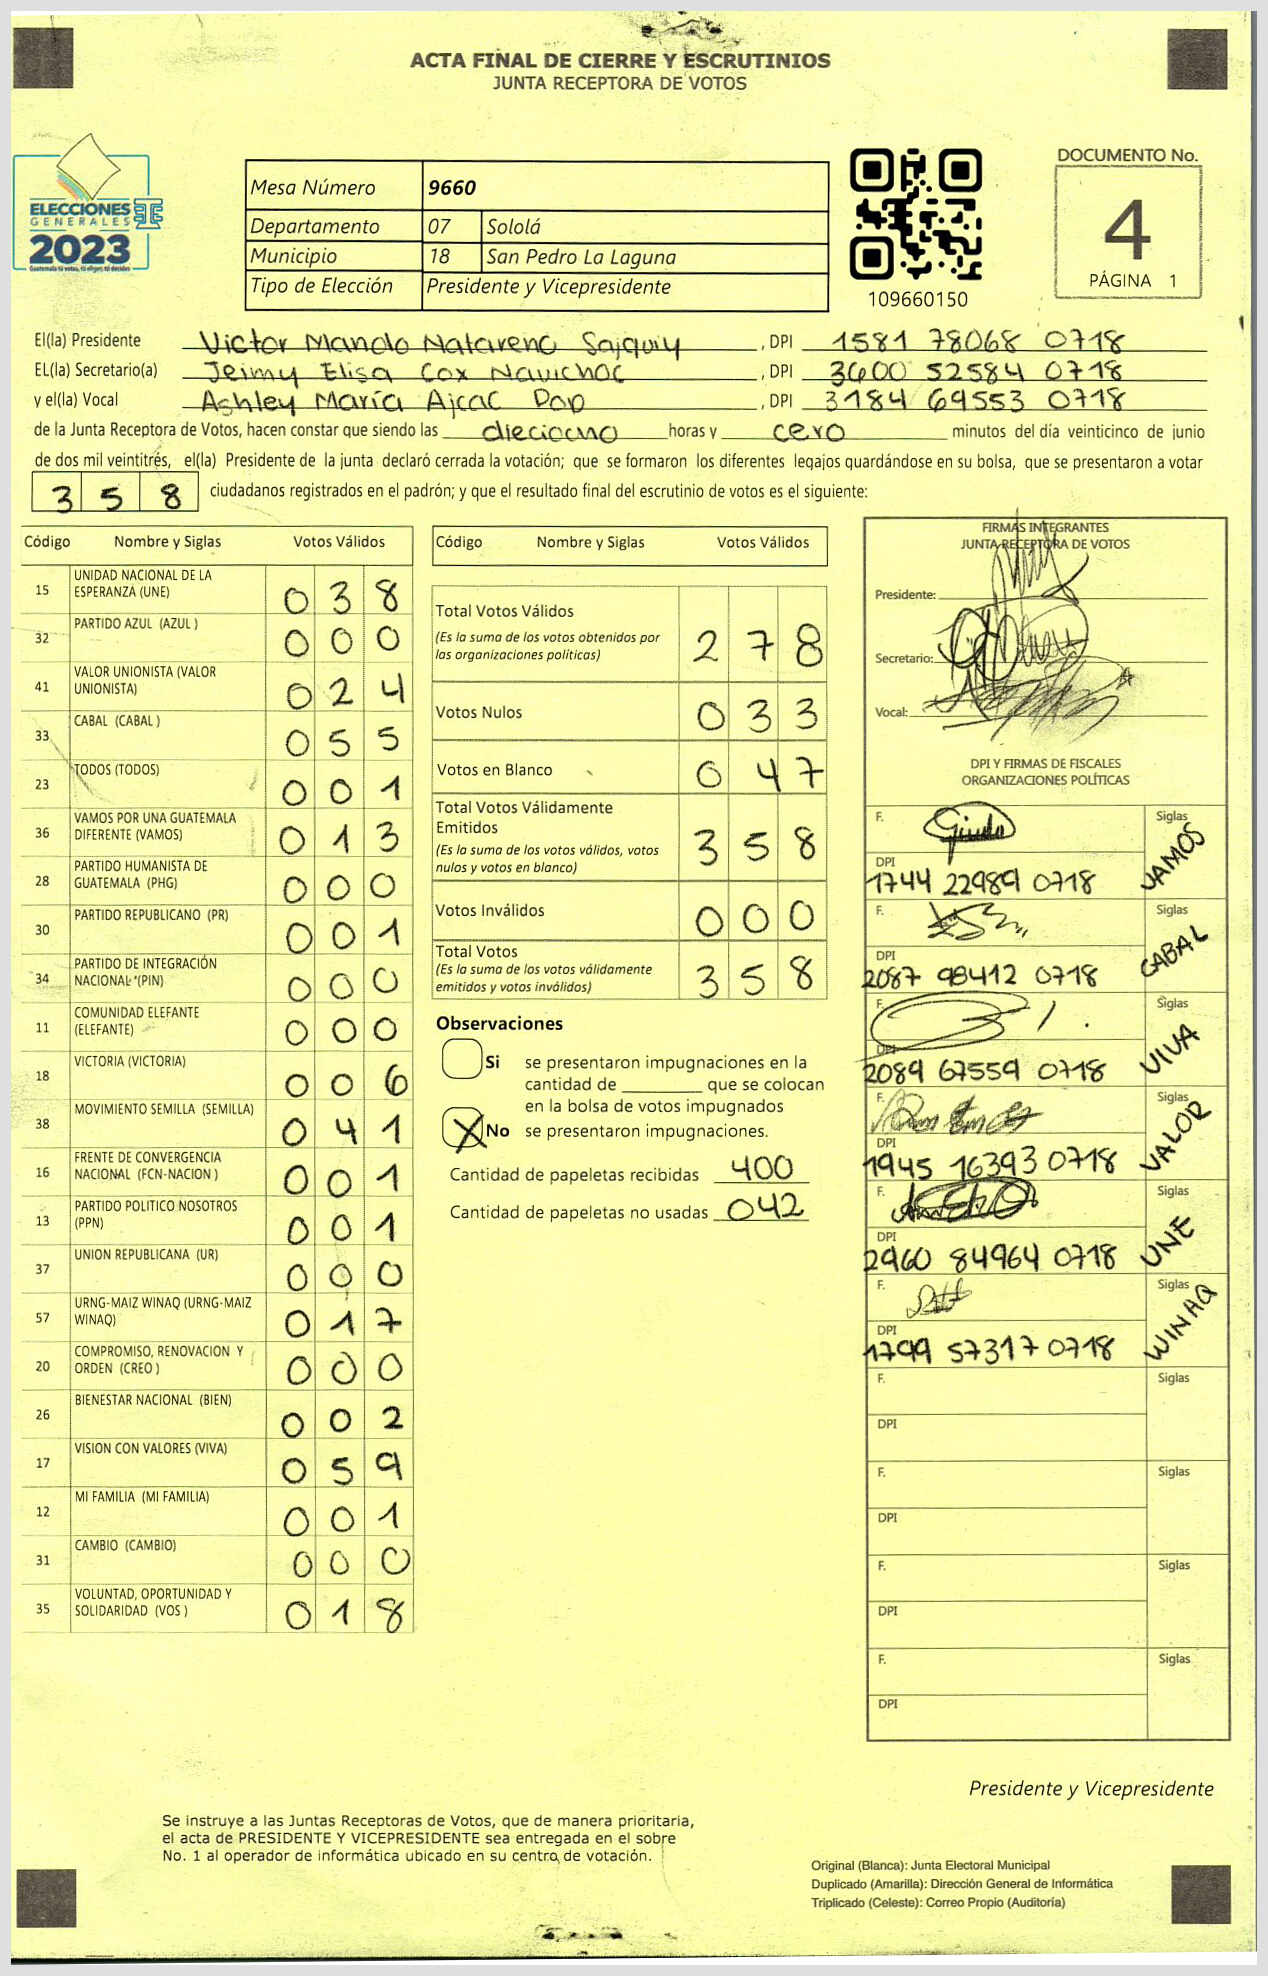 ACTA FINAL DE CIERRE Y ESCRUTINIOS
JUNTA RECEPTORA DE VOTOS
ELECCIONES
GENERALES
2023
Guatemala tú votas, tú eliges, tú decides
Mesa Número 9660
Departamento 07 Sololá
Municipio 18 San Pedro La Laguna
Tipo de Elección Presidente y Vicepresidente
109660150
DOCUMENTO No.
4
PÁGINA 1
El(la) Presidente Victor Manolo Natareno Sajquiy , DPI 1581 78068 0718
EL(la) Secretario(a) Jeimy Elisa Cox Navichoc , DPI 3600 52584 0718
y el(la) Vocal Ashley María Ajcac Pop , DPI 3184 69553 0718
de la Junta Receptora de Votos, hacen constar que siendo las dieciocho horas y cero minutos del día veinticinco de junio
de dos mil veintitrés, el(la) Presidente de la junta declaró cerrada la votación; que se formaron los diferentes legajos guardándose en su bolsa, que se presentaron a votar
3 5 8 ciudadanos registrados en el padrón; y que el resultado final del escrutinio de votos es el siguiente:
Código Nombre y Siglas Votos Válidos
15 UNIDAD NACIONAL DE LA
ESPERANZA (UNE) 0 3 8
32 PARTIDO AZUL (AZUL ) 0 0 0
41 VALOR UNIONISTA (VALOR
UNIONISTA) 0 2 4
33 CABAL (CABAL ) 0 5 5
23 TODOS (TODOS) 0 0 1
36 VAMOS POR UNA GUATEMALA
DIFERENTE (VAMOS) 0 1 3
28 PARTIDO HUMANISTA DE
GUATEMALA (PHG) 0 0 0
30 PARTIDO REPUBLICANO (PR) 0 0 1
34 PARTIDO DE INTEGRACIÓN
NACIONAL (PIN) 0 0 0
11 COMUNIDAD ELEFANTE
(ELEFANTE) 0 0 0
18 VICTORIA (VICTORIA) 0 0 6
38 MOVIMIENTO SEMILLA (SEMILLA) 0 4 1
16 FRENTE DE CONVERGENCIA
NACIONAL (FCN-NACION ) 0 0 1
13 PARTIDO POLITICO NOSOTROS
(PPN) 0 0 1
37 UNION REPUBLICANA (UR) 0 0 0
57 URNG-MAIZ WINAQ (URNG-MAIZ
WINAQ) 0 1 7
20 COMPROMISO, RENOVACION Y
ORDEN (CREO ) 0 0 0
26 BIENESTAR NACIONAL (BIEN) 0 0 2
17 VISION CON VALORES (VIVA) 0 5 9
12 MI FAMILIA (MI FAMILIA) 0 0 1
31 CAMBIO (CAMBIO) 0 0 0
35 VOLUNTAD, OPORTUNIDAD Y
SOLIDARIDAD (VOS ) 0 1 8
Código Nombre y Siglas Votos Válidos
Total Votos Válidos
(Es la suma de los votos obtenidos por
las organizaciones politicas) 2 7 8
Votos Nulos 0 3 3
Votos en Blanco 0 4 7
Total Votos Válidamente
Emitidos
(Es la suma de los votos válidos, votos
nulos y votos en blanco) 3 5 8
Votos Inválidos 0 0 0
Total Votos
(Es la suma de los votos válidamente
emitidos y votos inválidos) 3 5 8
Observaciones
Si se presentaron impugnaciones en la
cantidad de ________ que se colocan
en la bolsa de votos impugnados
X No se presentaron impugnaciones.
Cantidad de papeletas recibidas 400
Cantidad de papeletas no usadas 042
FIRMAS INTEGRANTES
JUNTA RECEPTORA DE VOTOS
Presidente:
Secretario:
Vocal:
DPI Y FIRMAS DE FISCALES
ORGANIZACIONES POLÍTICAS
F. Siglas
DPI VAMOS
1744 22989 0718
F. Siglas
DPI CABAL
2087 98412 0718
F. Siglas
DPI VIVA
2089 67559 0718
F. Siglas
DPI VALOR
1945 16393 0718
F. Siglas
DPI UNE
2960 84964 0718
F. Siglas
DPI WINAQ
1799 57317 0718
F. Siglas
DPI
F. Siglas
DPI
F. Siglas
DPI
F. Siglas
DPI
Presidente y Vicepresidente
Se instruye a las Juntas Receptoras de Votos, que de manera prioritaria,
el acta de PRESIDENTE Y VICEPRESIDENTE sea entregada en el sobre
No. 1 al operador de informática ubicado en su centro de votación.
Original (Blanca): Junta Electoral Municipal
Duplicado (Amarilla): Dirección General de Informática
Triplicado (Celeste): Correo Propio (Auditoría)